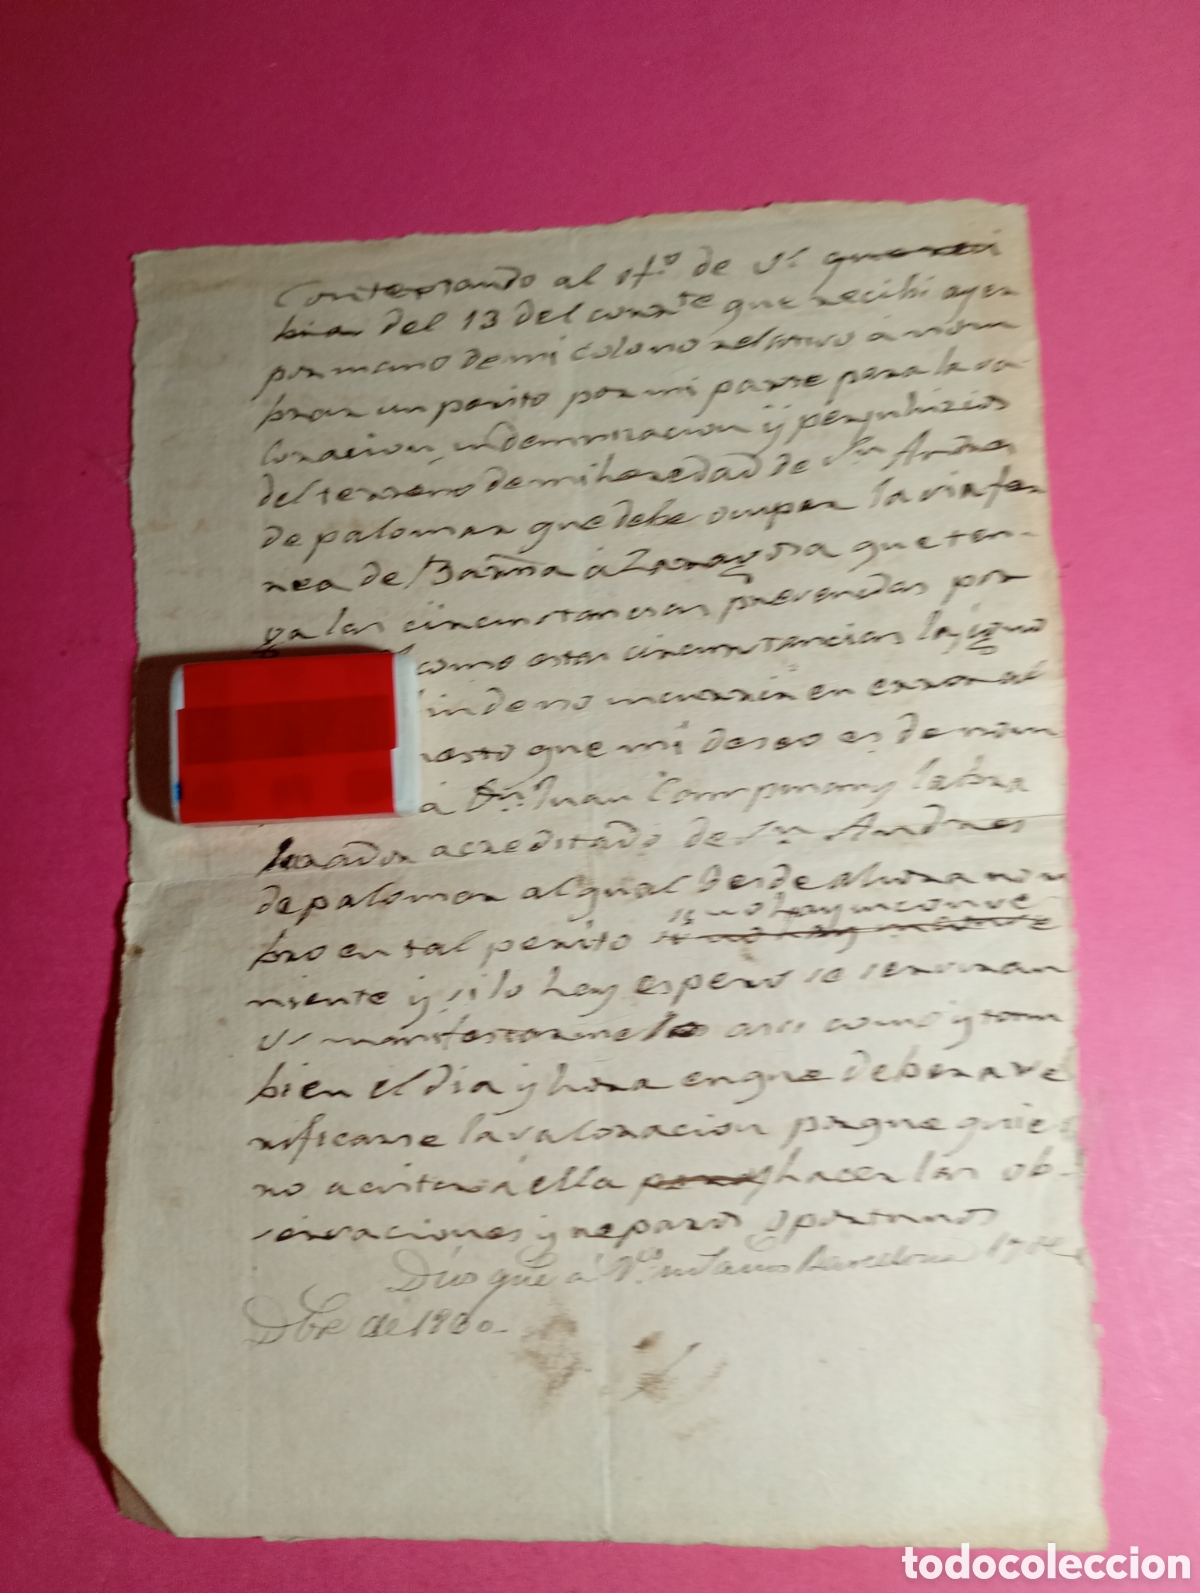 Contestando al of.º de V.s
del 13 del corr.te que recibi ayer
por mano de mi colono relativo á nom
brar un perito por mi parte para la va
loracion, indemnizacion y perjuhicios
del terreno de mi heredad de S.n Andres
de palomar que debe ocupar la via fer
rea de Barna á Zaragosa que ten-
ga las circunstancias prevenidas por
como estas circunstancias las igno
fin de no incurrir en error al
esto que mi deseo es de nom
á Dn. Juan Compmany labra
rador acreditado de S.n Andres
de palomar al qual desde ahora nom
bro en tal perito si no hay inconve
niente y si lo hay espero se serviran
V.s manifestarmelo asi como y tam
bien el dia y hora en que debera ve
rificarse la valoracion porque quie
ro acistir á ella hacer las ob-
servaciones y reparos oportunos
Dios gue á V.s m.s años Barcelona 17 de
Dbre de 1860-
todocoleccion